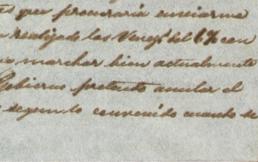 que procuraria enviarme
realizado las Veng.s del 6% con
marchar bien actualmente
Gobierno pretende anular el
segun lo convenido cuando se